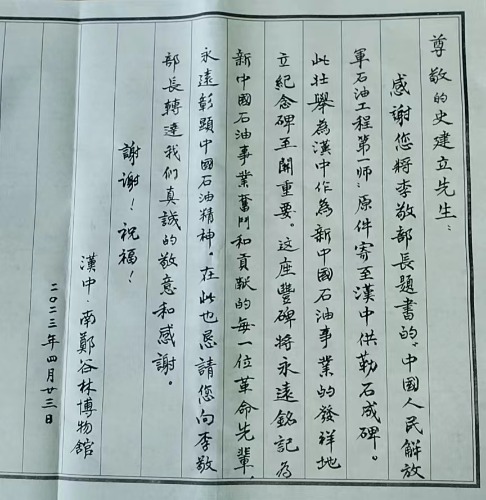 尊敬的史建立先生：
感谢您将李敬部長題書的“中國人民解放
軍石油工程第一師”原件寄至漢中供勒石成碑。
此壯舉為漢中作為新中國石油事業的發祥地
立紀念碑至關重要。这座豐碑將永遠銘記為
新中國石油事業奮鬥和貢献的每一位革命先輩，
永遠彰顯中國石油精神。在此也恳請您向李敬
部長轉達我们真誠的敬意和感謝。
謝謝！祝福！
漢中·南鄭谷林博物館
二〇二三年四月廿三日